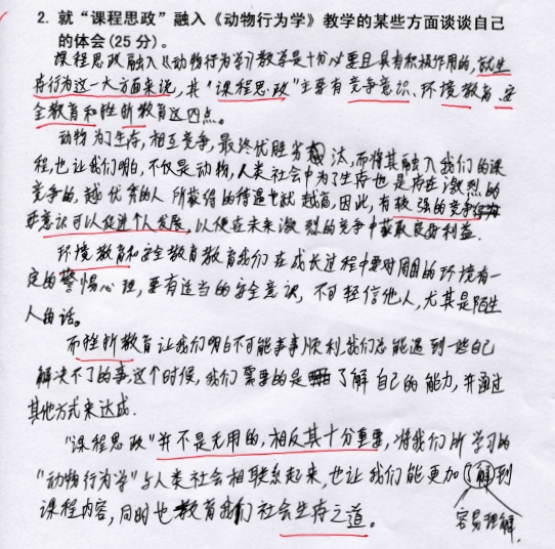 2. 就“课程思政”融入《动物行为学》教学的某些方面谈谈自己
的体会(25 分)。
课程思政融入《动物行为学》教学是十分必要且具有积极作用的,就生
存行为这一大方面来说,其“课程思政”主要有竞争意识、环境教育、安
全教育和挫折教育这四点。
动物为了生存,相互竞争,最终优胜劣汰,而将其融入我们的课
程,也让我们明白,不仅是动物,人类社会中为了生存也是存在激烈的
竞争的,越优秀的人所获得的待遇也就越高,因此,有较强的竞争
意识可以促进个人发展,以便在未来激烈的竞争中获取良好利益.
环境教育和安全教育教育我们在成长过程中要对周围的环境有一
定的警惕心理,要有适当的安全意识,不可轻信他人,尤其是陌生
人的话。
而挫折教育让我们明白不可能事事顺利,我们总能遇到一些自己
解决不了的事,这个时候,我们需要的是了解自己的能力,并通过
其他方式来达成.
“课程思政”并不是无用的,相反其十分重要,将我们所学习的
“动物行为学”与人类社会相联系起来,也让我们能更加了解到
课程内容,同时也教育我们社会生存之道。
容易理解.